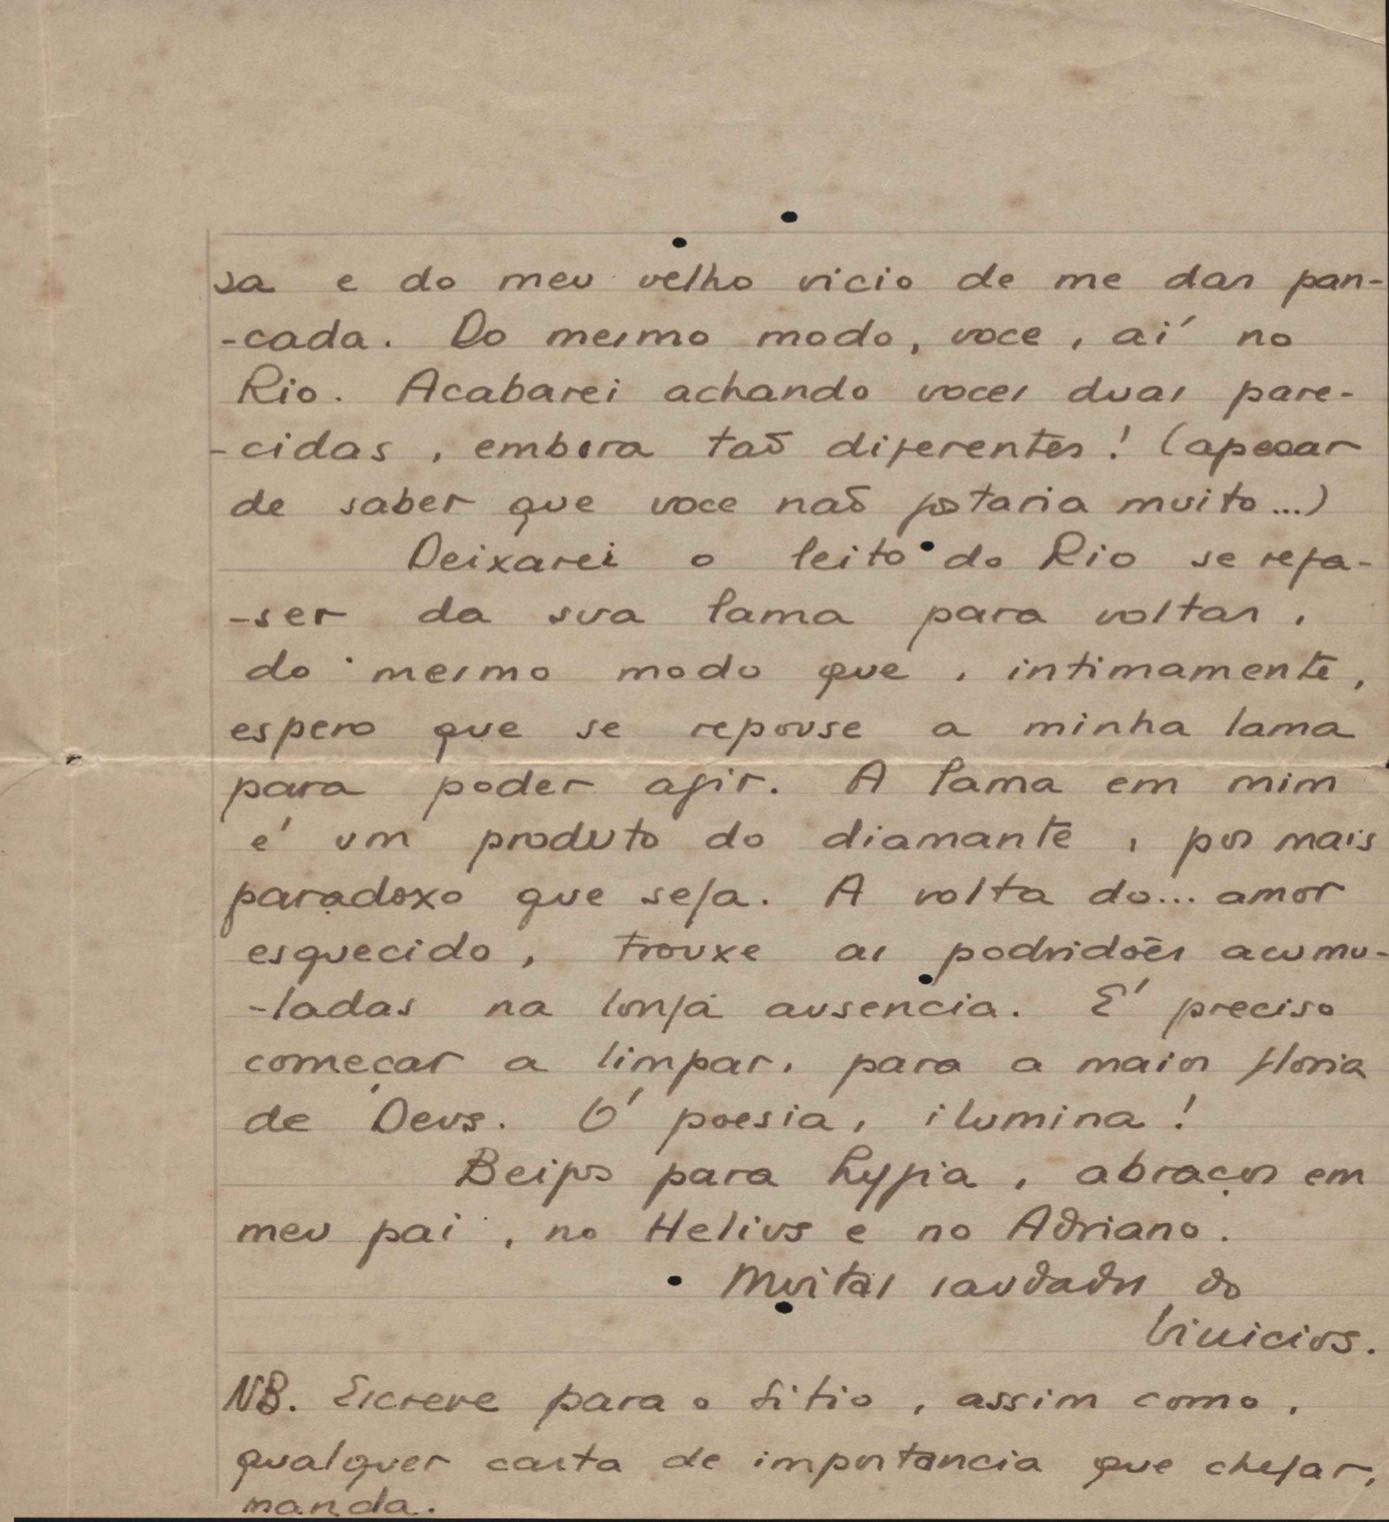 sa e do meu velho vicio de me dar pan-
-cada. Do mesmo modo, voce, aí no
Rio. Acabarei achando voces duas pare-
-cidas, embora taõ diferentes! (apesar
de saber que voce naõ gostaria muito...)
Deixarei o leito do Rio se refa-
-ser da sua lama para voltar,
do mesmo modo que, intimamente,
espero que se repouse a minha lama
para poder agir. A lama em mim
é um produto do diamante, por mais
paradoxo que seja. A volta do... amor
esquecido, trouxe as podridões acumu-
-ladas na longa ausencia. É preciso
começar a limpar, para a maior gloria
de Deus. Ó poesia, ilumina!
Beijos para Lygia, abraços em
meu pai, no Helius e no Adriano.
Muitas saudades do
Vinicius.
NB. Escreve para o Sitio, assim como,
qualquer carta de importancia que chegar,
manda.